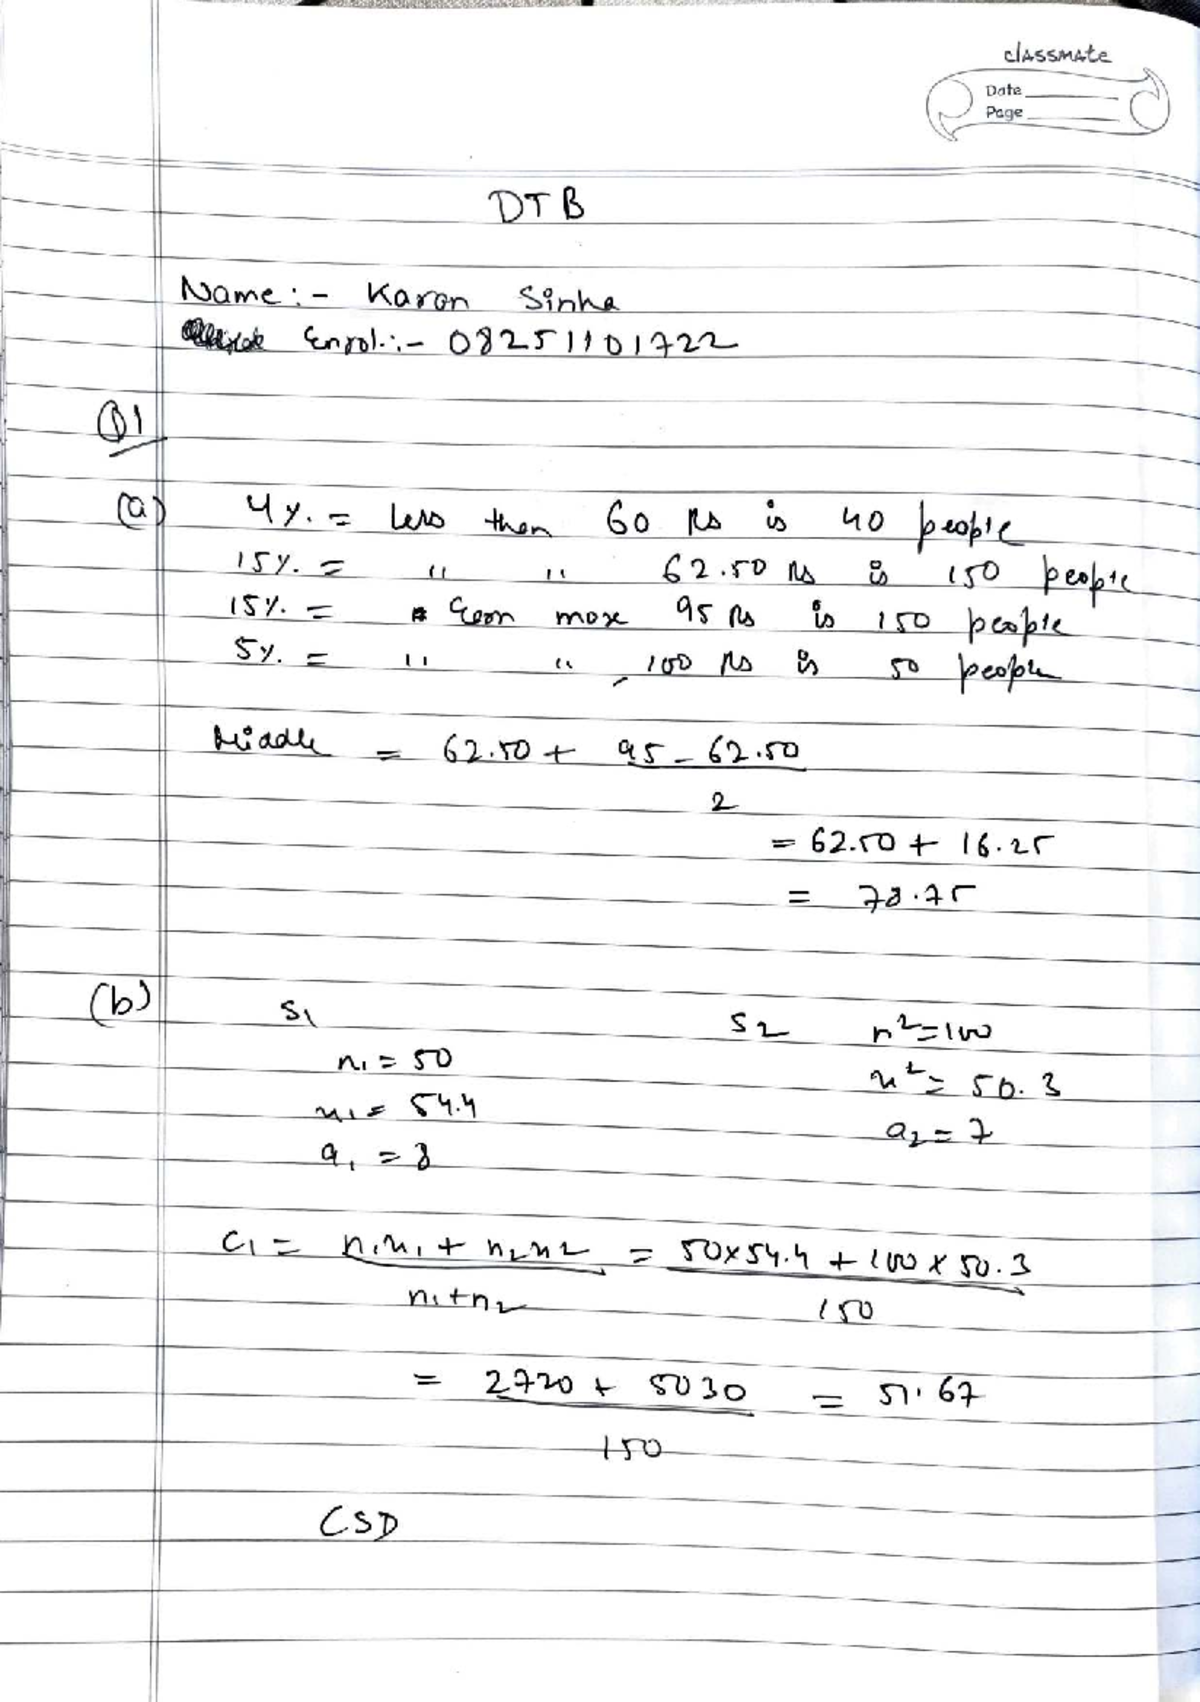 classmate
Date
Page
DTB
Name:- Karan Sinha
Enrol.:- 08251101722
Q1
(a) 4%. = less then 60 Rs is 40 people
15%. = " " 62.50 Rs is 150 people
15%. = Earn more 95 Rs is 150 people
5%. = " " 100 Rs is 50 people
Middle = 62.50 + 95 - 62.50
2
= 62.50 + 16.25
= 78.75
(b) S1 S2 n2=100
n1 = 50 x2 = 50.3
x1 = 54.4 a2 = 7
a1 = 8
C1 = n1x1 + n2x2 = 50x54.4 + 100 x 50.3
n1+n2 150
= 2720 + 5030 = 51.67
150
CSD